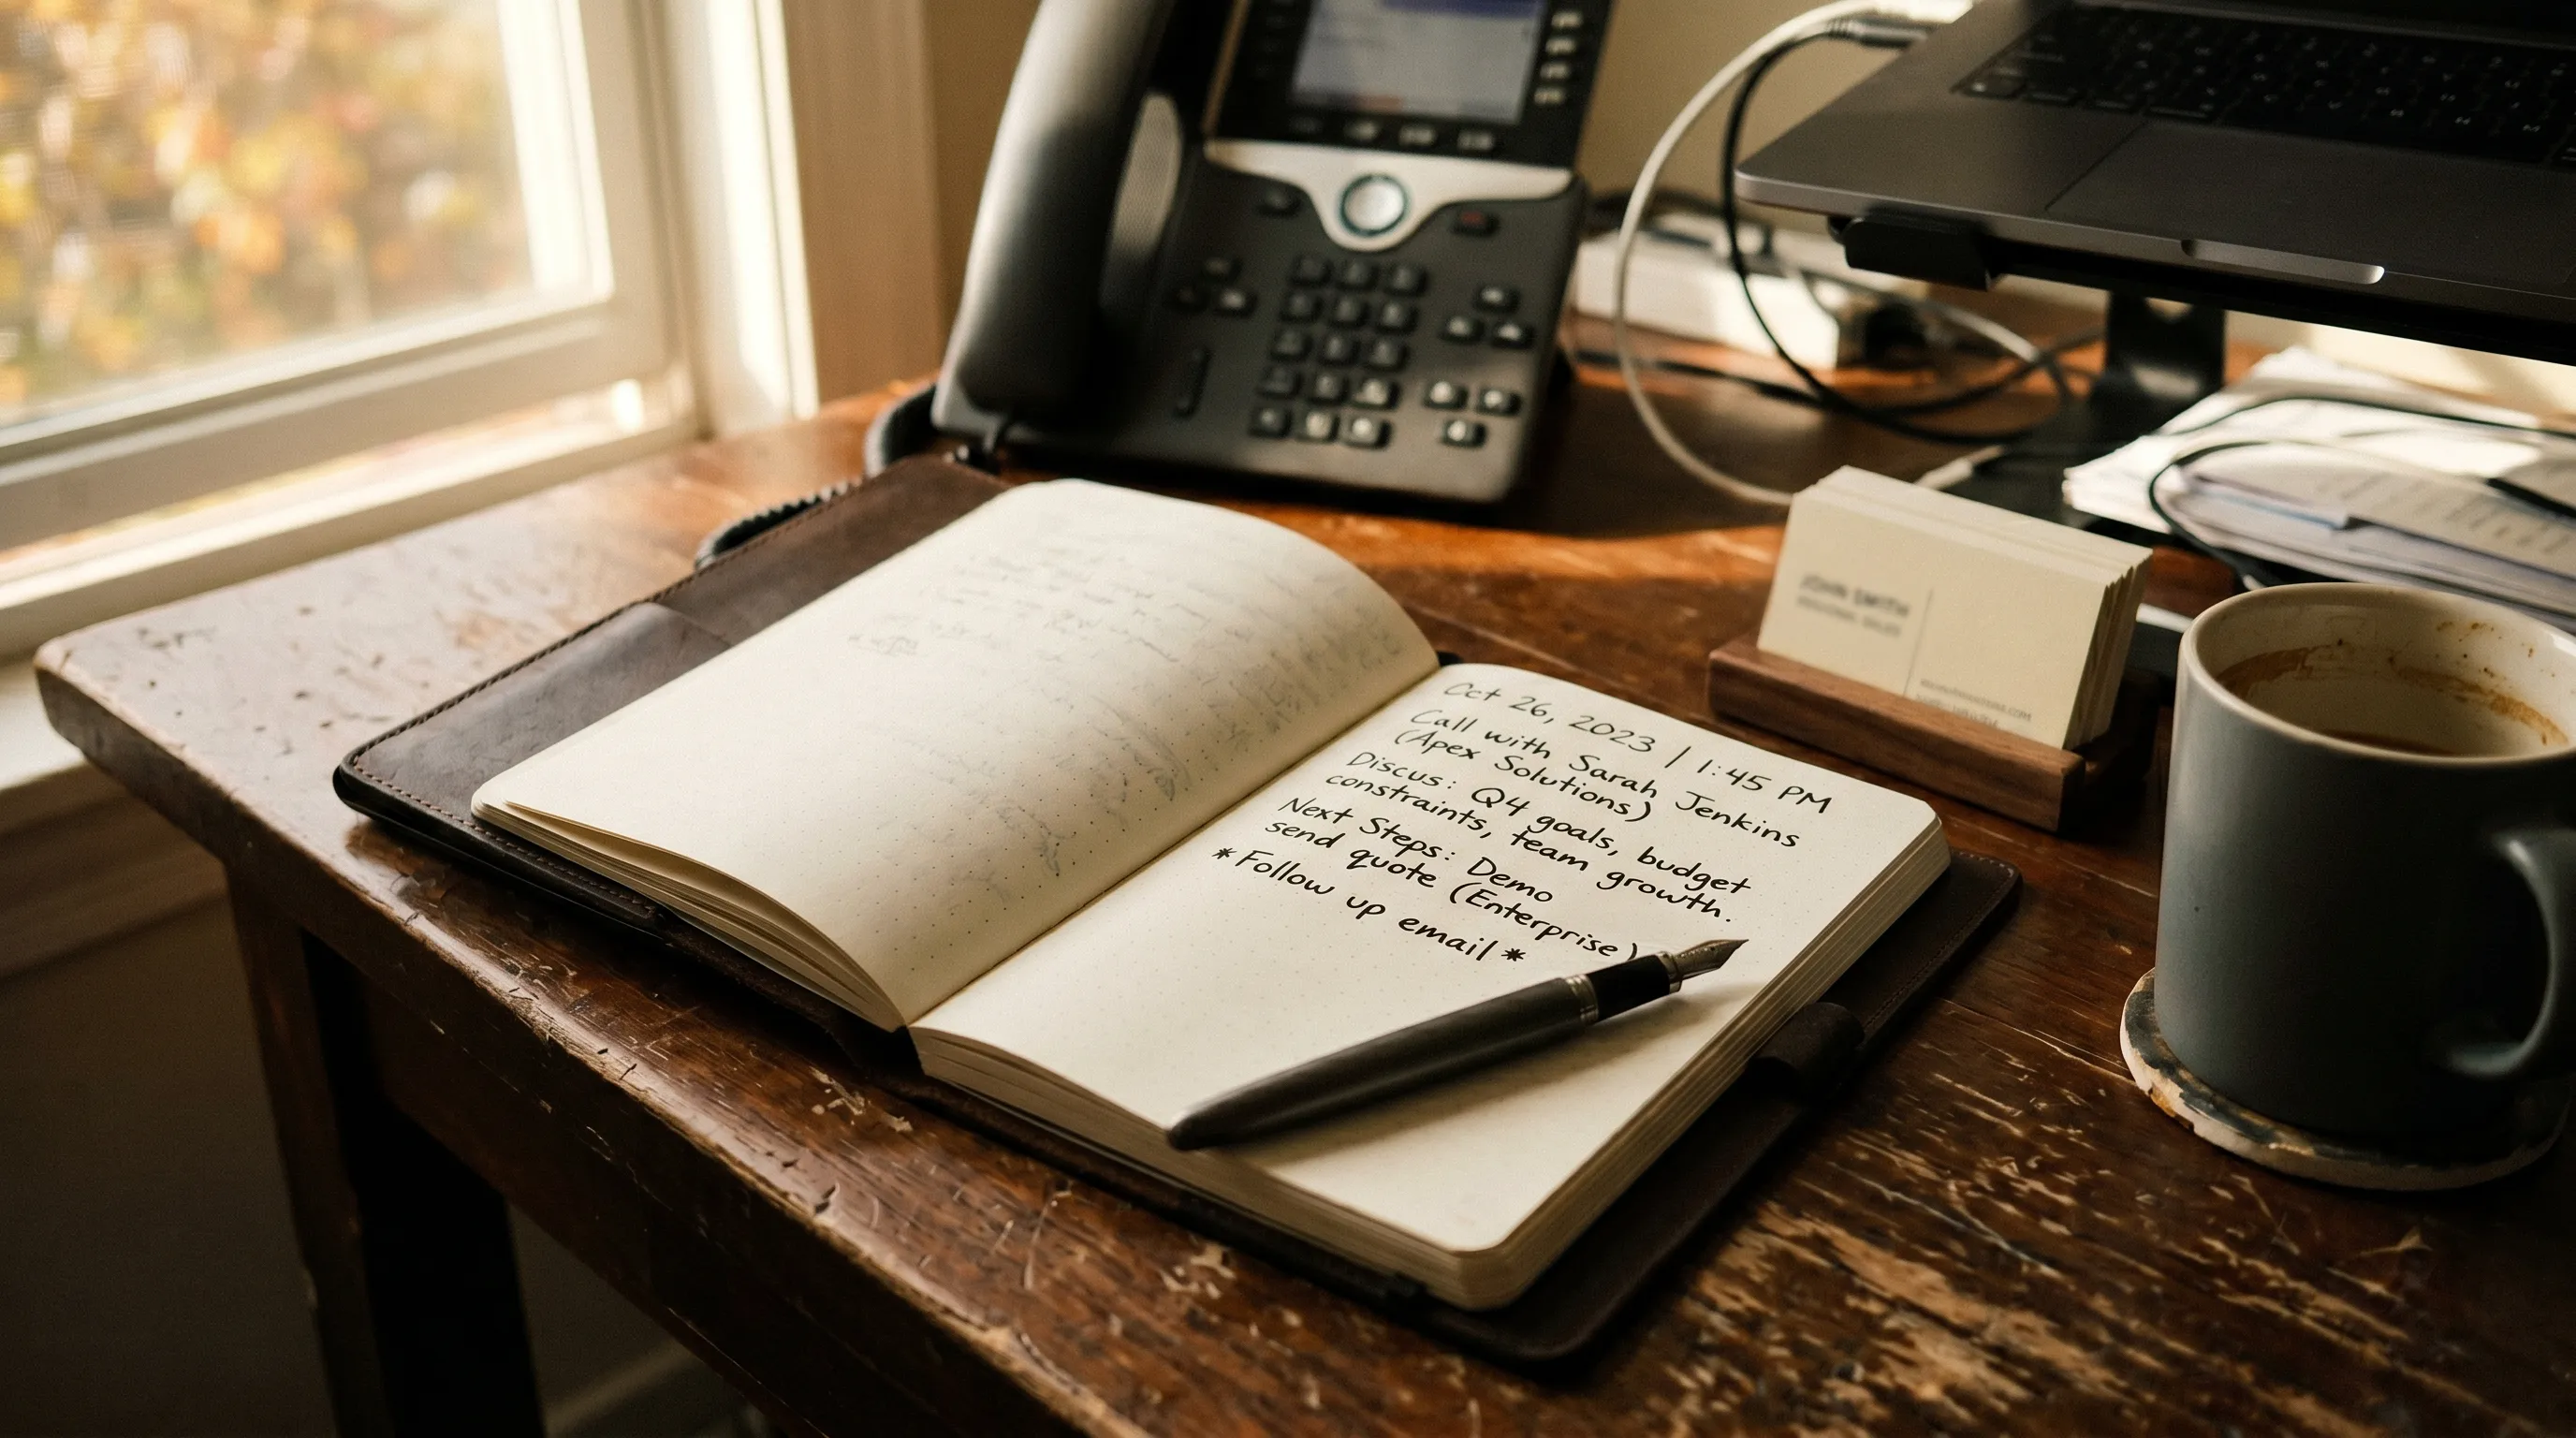 Oct 26, 2023 | 1:45 PM
Call with Sarah Jenkins
(Apex Solutions)
Discus: Q4 goals, budget
constraints, team growth.
Next Steps: Demo
send quote (Enterprise)
*Follow up email*
JOHN SMITH